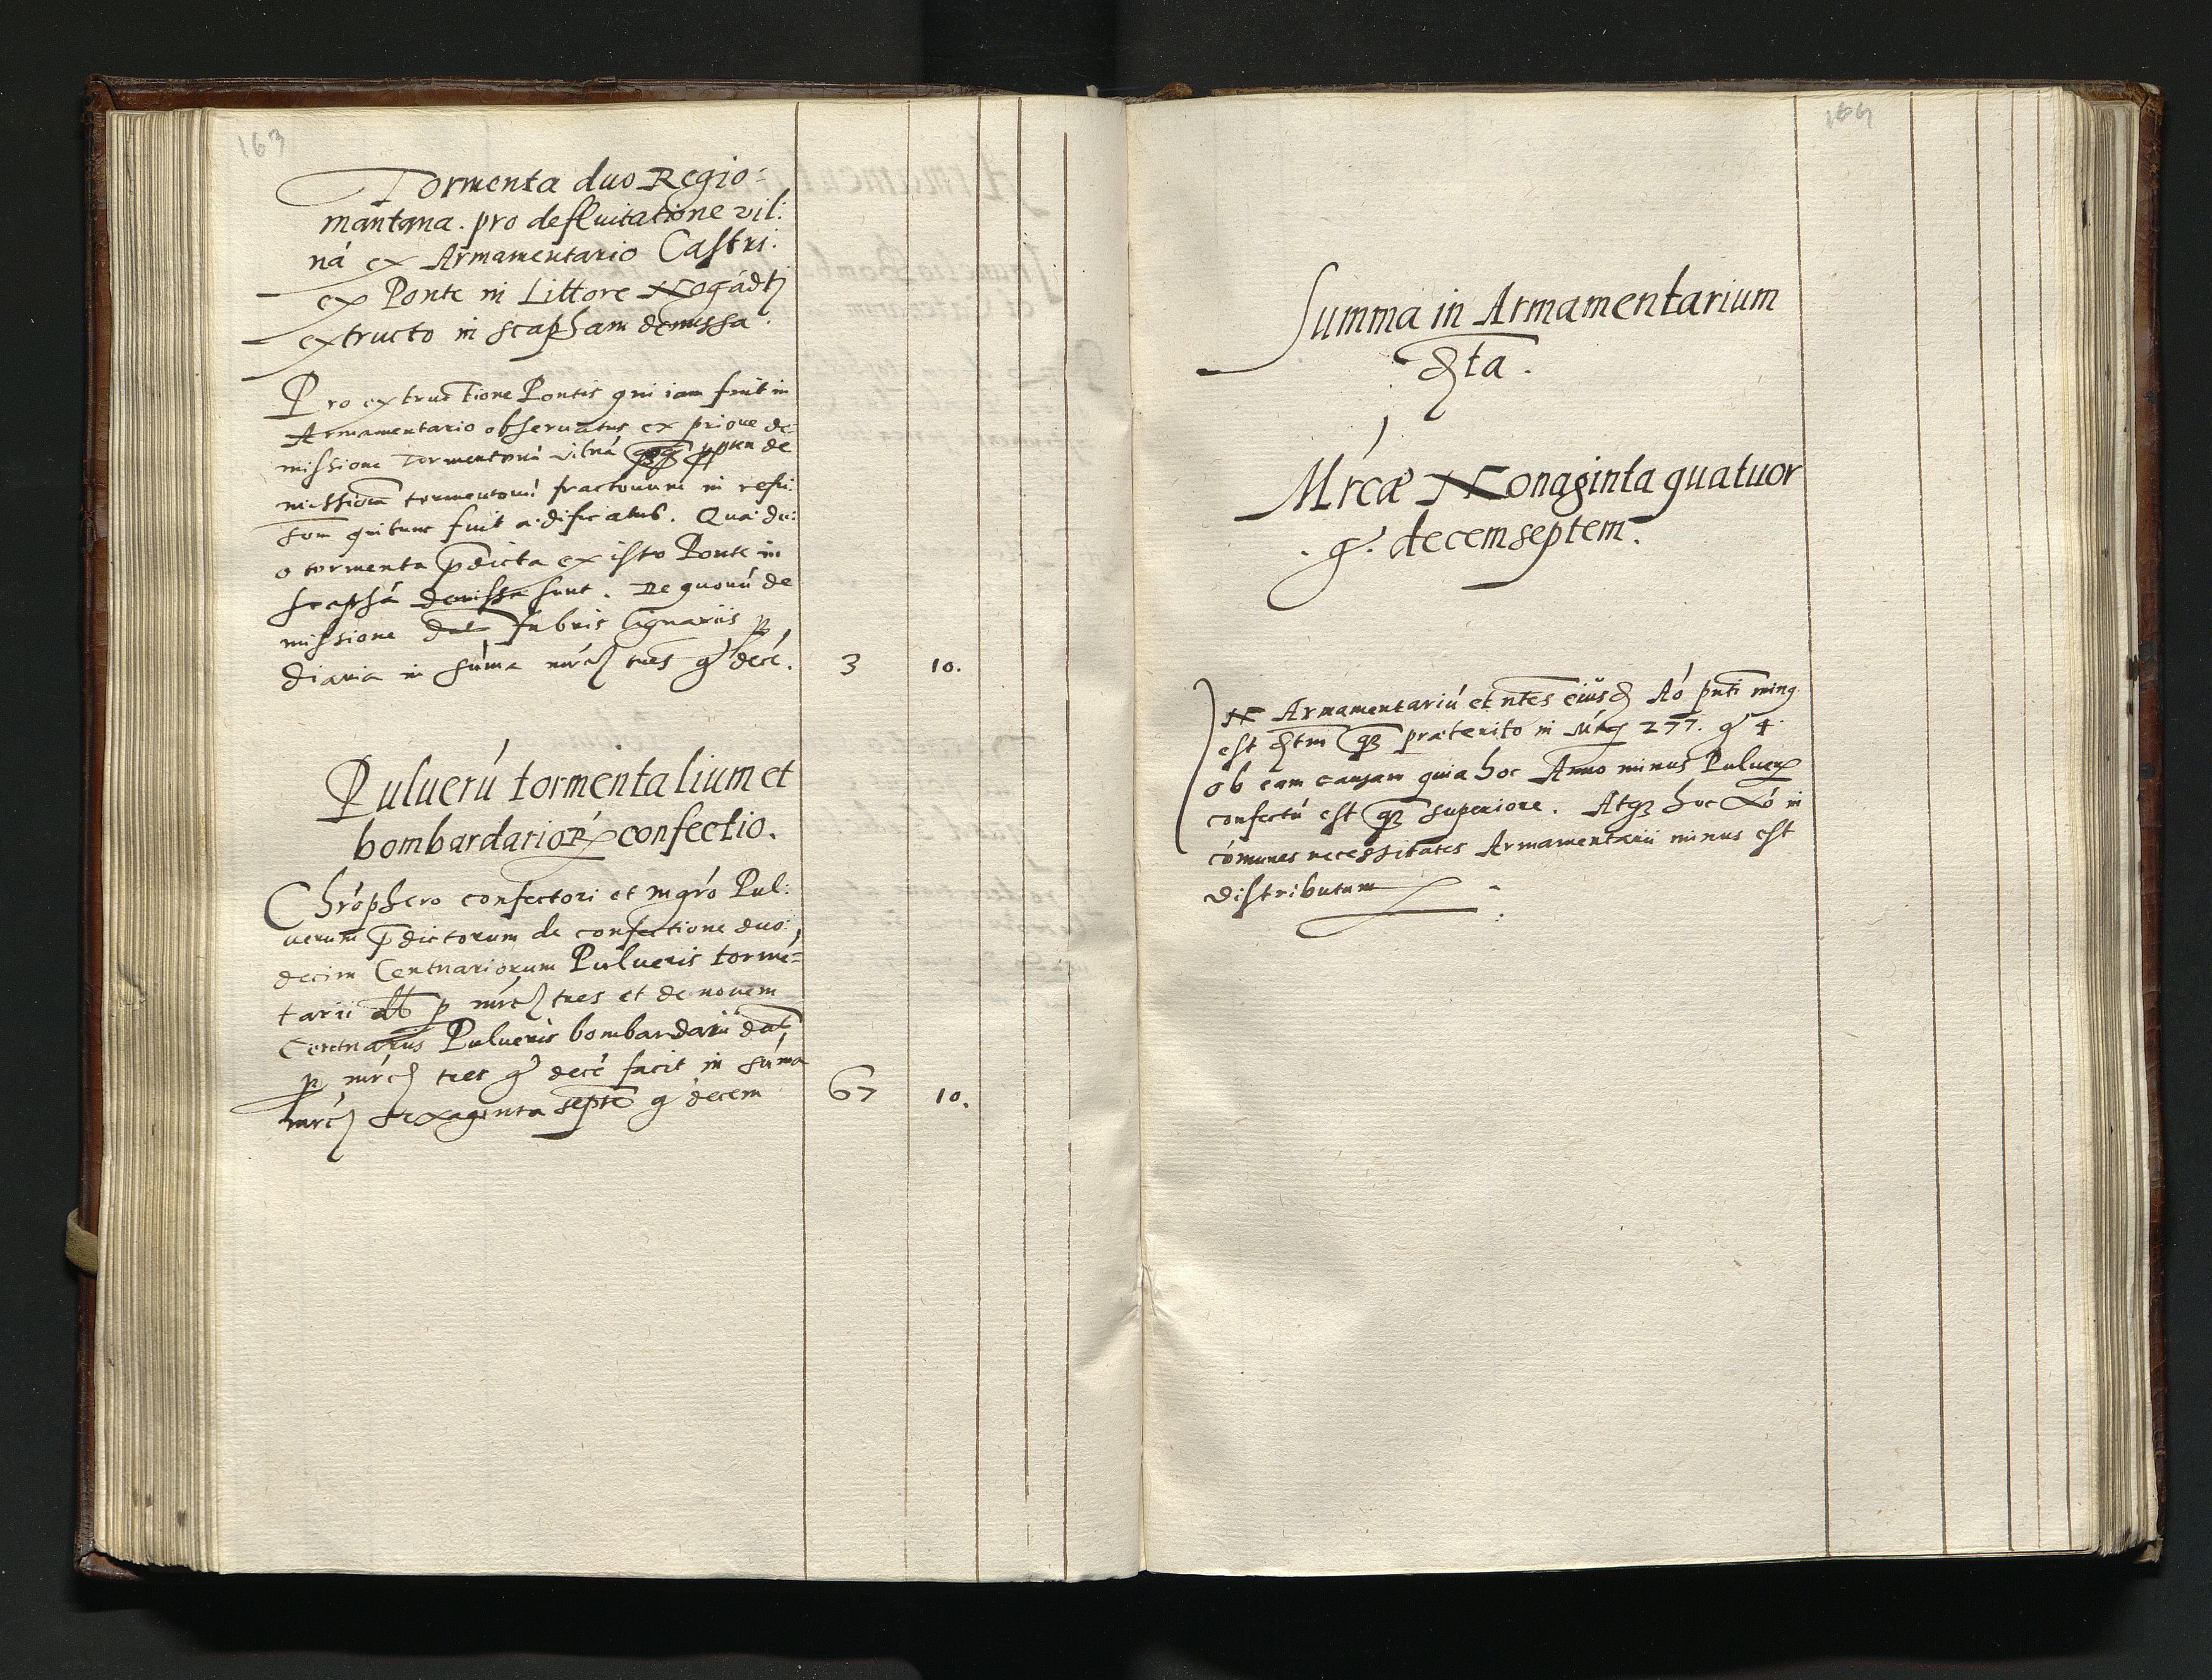 163
Tormenta duo Regio=
mantana. pro defluitatione vil:
ná ex Armamentario Castri.
ex Ponte in Littore Nogádtj
extructo in scapham demissa.
Pro extructione Pontis qui iam fuit in
Armamentario obseruatus ex priore de=
missione tormentorú vilná ppter de
missionem tormentorú fractorum in
qui tunc fuit ædificatus. Quæ du:
o tormenta pdicta ex isto Ponte in
scaphá demissa sunt. De quorú de
missione dat fabris lignariis p
diaria in súma mrcas tres g decé. 3 10.
Puluerú tormentalium et
bombardarior confectio.
Chróphero confectori et mgró Pul:
uerum pdictorum de confectione duo:
decim Centnariorum Pulueris tormé=
tarii ab p mrcas tres et de nouem
Centnariis Pulueris bombardarii dat
p mrcas tres g decé facit in súma
mrcas sexaginta septé g decem 67 10.
164
Summa in Armamentarium
Exta.
Mrcæ Nonaginta quatuor
g. decemseptem.
In Armamentariú et ntes eiusd Aó pnti minq
est Extm qz præterito in Mrcas 277. g 4.
ob eam causam quia hoc Anno minus Puluer
confectú est qz superiore. Atqz hoc Aó in
cómunes necessitates Armamentarii minus est
distributum